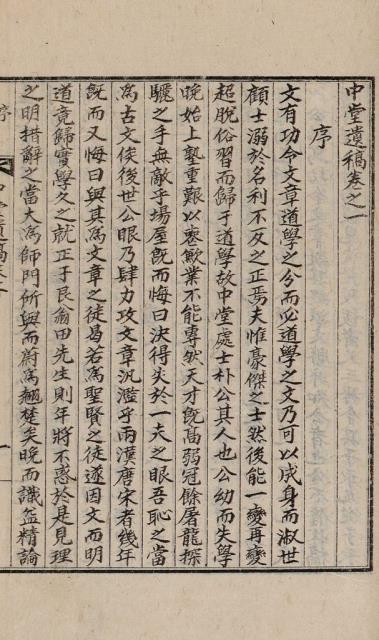 中堂遺稿卷之一
序
文有功令文章道學之分而必道學之文乃可以成身而淑世
顧士溺於名利不反之正焉夫惟豪傑之士然後能一變再變
超脫俗習而歸于道學故中堂處士朴公其人也公幼而失學
晩始上塾重艱以恩歉業不能專然天才旣高弱冠餘屠龍探
驪之手無敵乎場屋旣而悔曰決得失於一夫之眼吾恥之當
爲古文俟後世公眼乃肆力攻文章汎濫乎兩漢唐宋者幾年
旣而又悔曰與其爲文章之徒曷若爲聖賢之徒遂因文而明
道竟歸實學久之就正于艮翁田先生則年將不惑於是見理
之明措辭之當大爲師門所與而蔚爲翹楚矣晩而識益精論
序
一